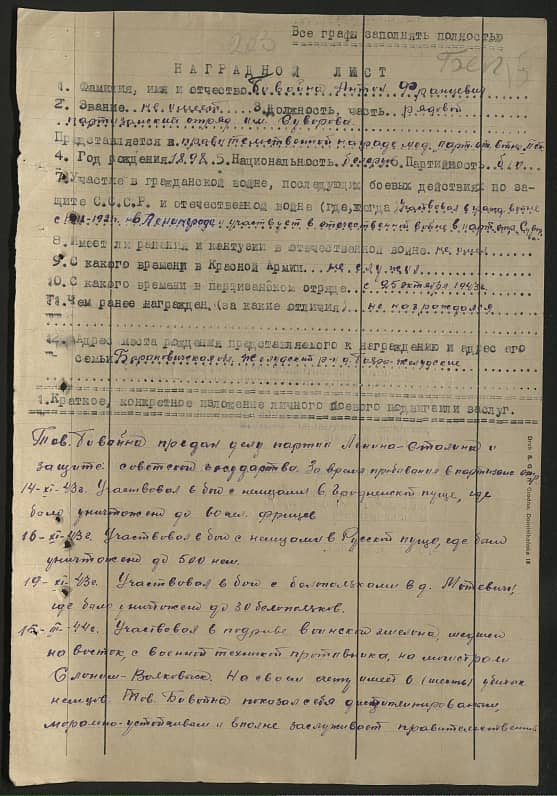 Все графы заполнять полностью
203
НАГРАДНОЙ ЛИСТ
1. Фамилия, имя и отчество Бовойна Антон Францевич
2. Звание не имеет 3. Должность, часть рядовой
партизанский отряд им. Суворова
Представляется к правительственной награде мед. парт. от.
4. Год рождения 1898 5. Национальность 6. Партийность б/п
7. Участие в гражданской войне, последующих боевых действиях по за-
щите С.С.С.Р. и отечественной войне (где, когда) Участвовал в гражд. войне
Ленинграде и участвует в отечественной войне в парт. отр.
8. Имеет ли ранения и контузии в отечественной войне не имеет
9. С какого времени в Красной Армии не служил
10. С какого времени в партизанском отряде с 25 октября 1943г.
11. Чем ранее награжден (за какие отличия) не награждался
12. Адрес места рождения представляемого к награждению и адрес его
семьи Барановичская обл. Желудский р-н д.
1. Краткое, конкретное изложение личного боевого подвига или заслуг.
Тов. Бовойна предан делу партии Ленина-Сталина и
защите советского государства. За время пребывания в партизанс. отр.
14-XI-43г. Участвовал в бою с немцами в Гродненской пуще, где
было уничтожено до фрицев
16-XI-43г. Участвовал в бою с немцами в Русской пуще, где было
уничтожено до 500 нем.
19-XI-43г. Участвовал в бою с белополяками в д. Мотевичи,
где было уничтожено до 30 белополяков.
15-III-44г. Участвовал в подрыве воинского эшелона, шедшего
на восток, с военной техникой противника, на магистрали
Слоним-Волковыск. На своем счету имеет 6 (шесть) убитых
немцев. Тов. Бовойна показал себя дисциплинированным,
морально-устойчивым и вполне заслуживает правительственной